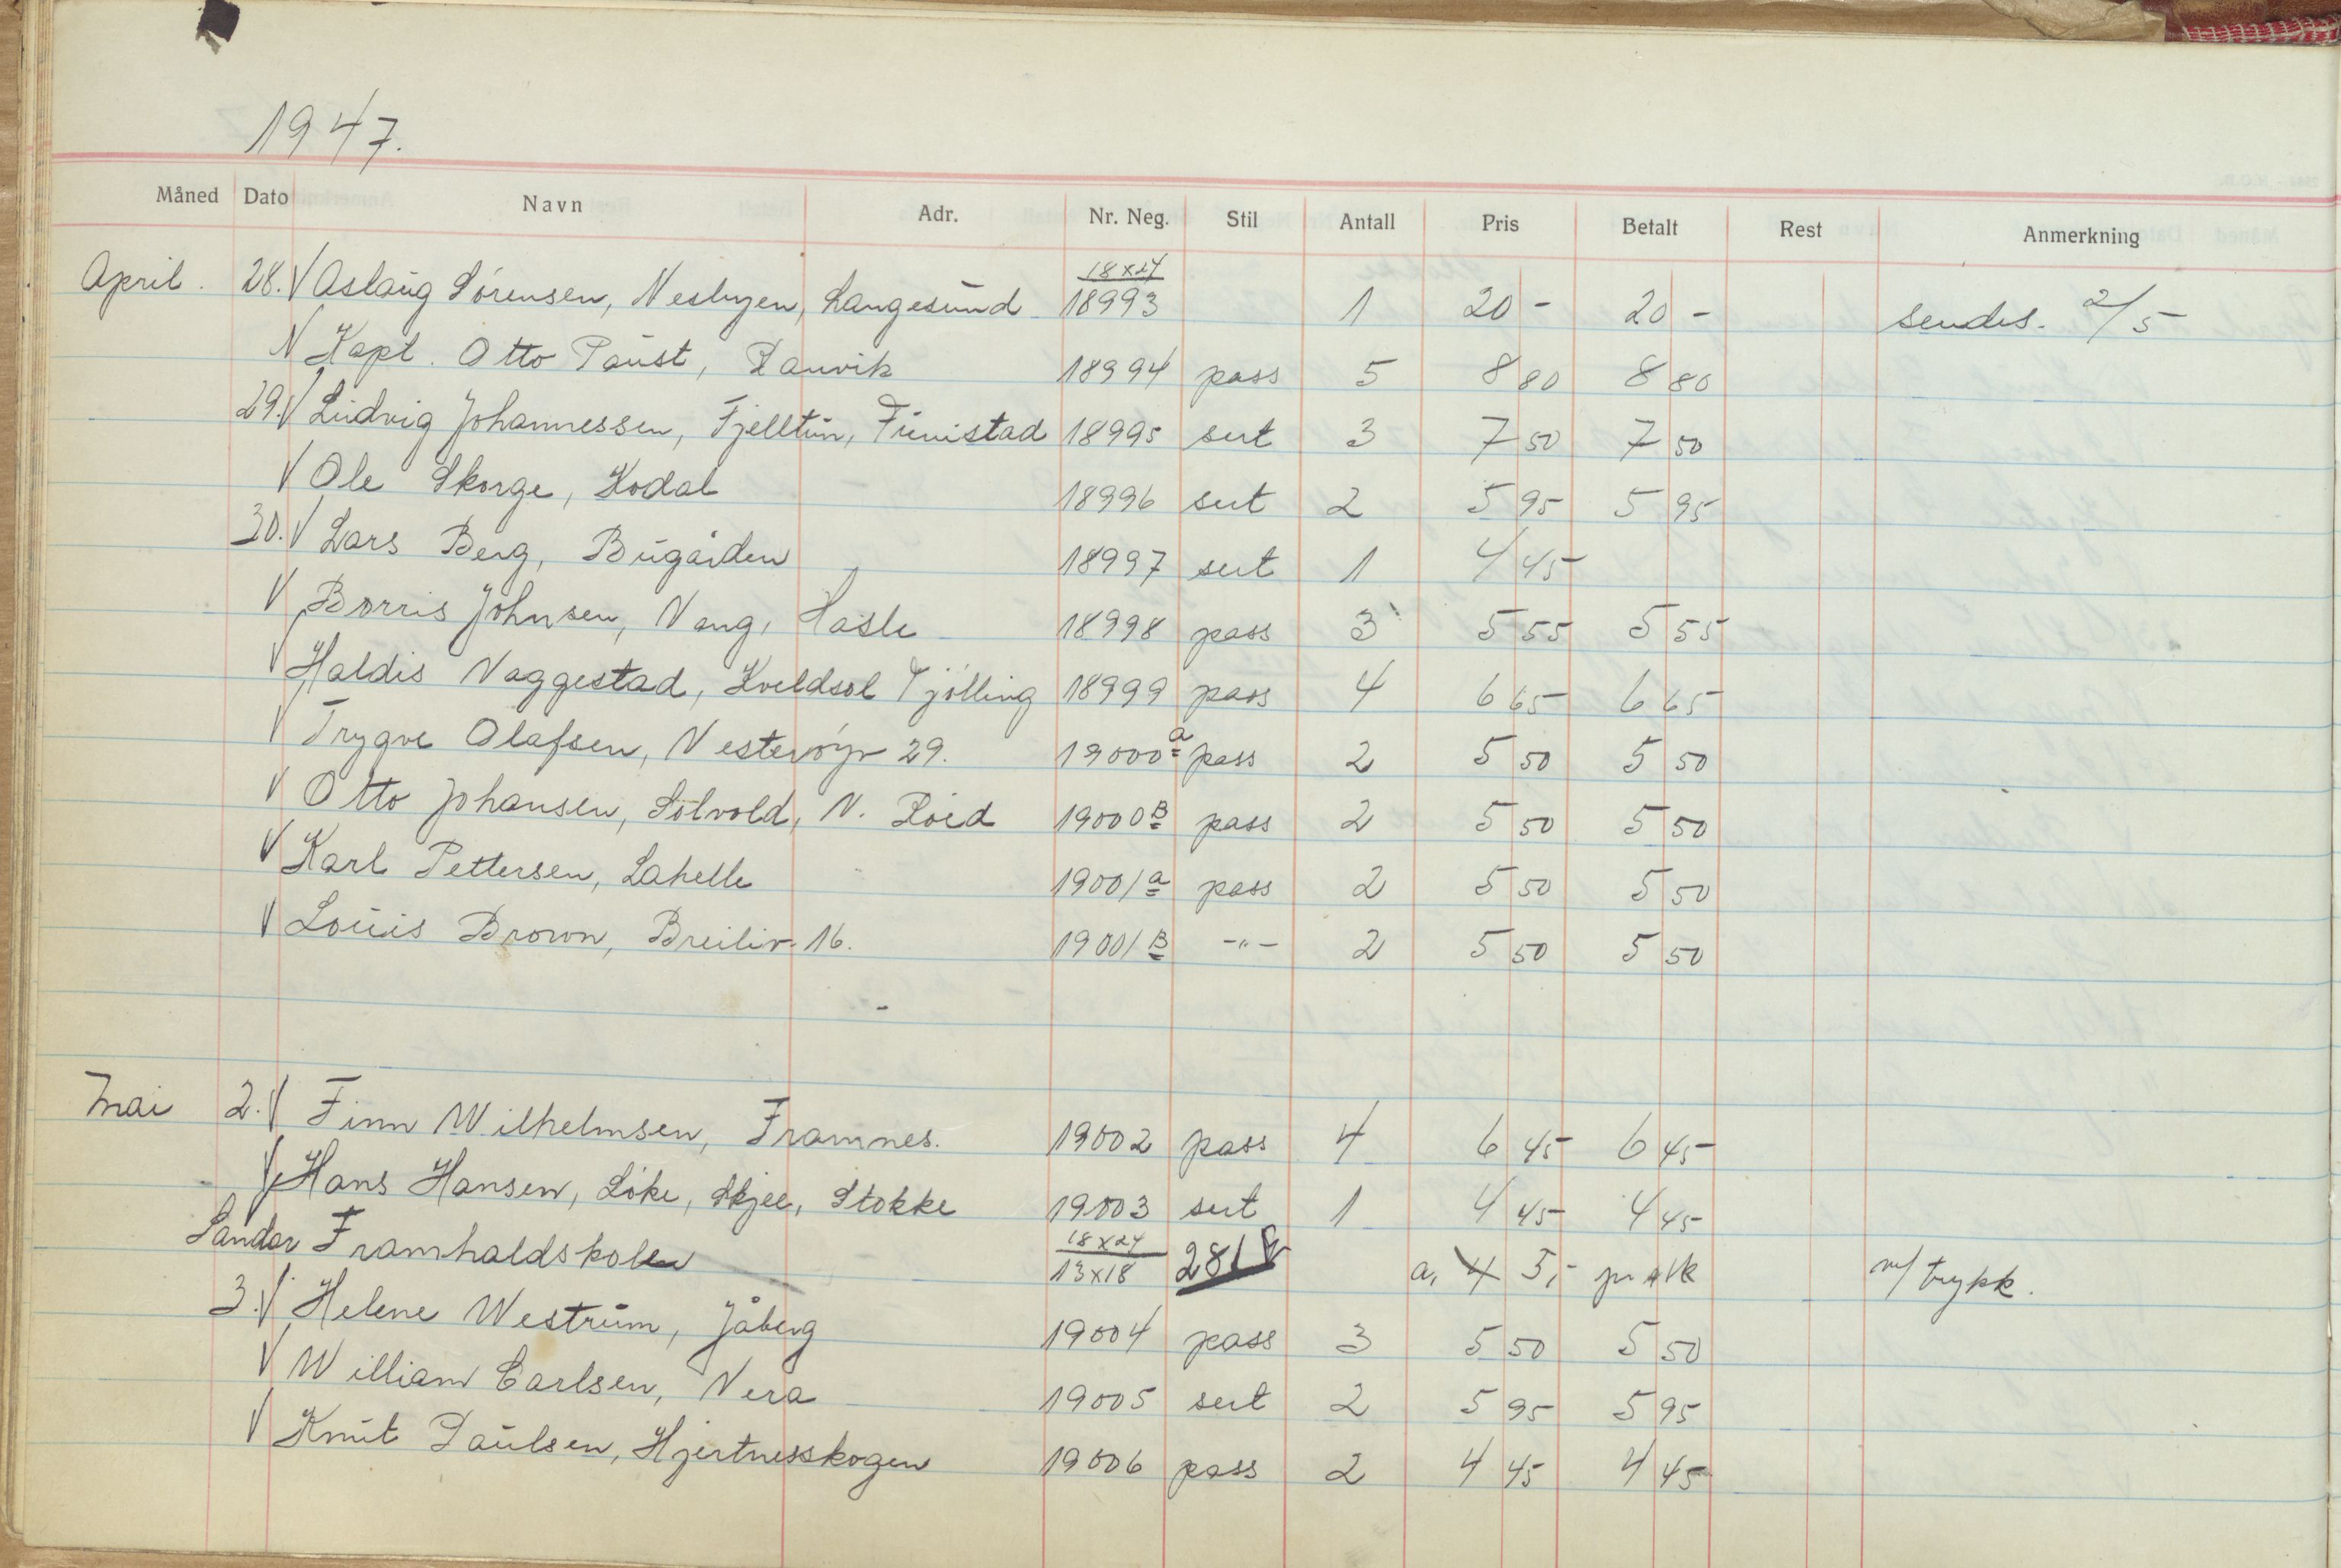 1947.
Måned Dato Navn Adr. Nr. Neg. Stil Antall Pris Betalt Rest Anmerkning
April. 28. V Aslaug Sörensen, Nesbyen, Langesund 18x24 18993 1 20 - 20 - sendes. 2/5
V Kapt. Otto Paust, Ranvik 18994 pass 5 8 80 8 80
29. V Ludvig Johannessen, Fjelltun, Furustad 18995 sert 3 7 50 7 50
V Ole Skorge, Kodal 18996 sert 2 5 95 5 95
30. V Lars Berg, Bugården 18997 sert 1 4 45
V Borris Johnsen, Vang, Hasle 18998 pass 3 5 55 5 55
V Haldis Vaggestad, Kveldsol Tjölling 18999 pass 4 6 65 6 65
V Trygve Olafsen, Vesteröyv 29. 19000 a pass 2 5 50 5 50
V Otto Johansen, Solvold, N. Röed 19000 B pass 2 5 50 5 50
V Karl Pettersen, Lahelle 19001 a pass 2 5 50 5 50
V Louis Brown, Breiliv. 16. 19001 B -"- 2 5 50 5 50
Mai 2. V Finn Wilhelmsen, Framnes. 19002 pass 4 6 45 6 45
V Hans Hansen, Löke, Skjee, Stokke 19003 sert 1 4 45 4 45
Sandar Framhaldskolen 18x24 13x18 281 a, 4 5,- pr. stk m/ trykk.
3. V Helene Westrum, Jåberg 19004 pass 3 5 50 5 50
V William Carlsen, Vera 19005 sert 2 5 95 5 95
V Knut Paulsen, Hjertnesskogen 19006 pass 2 4 45 4 45